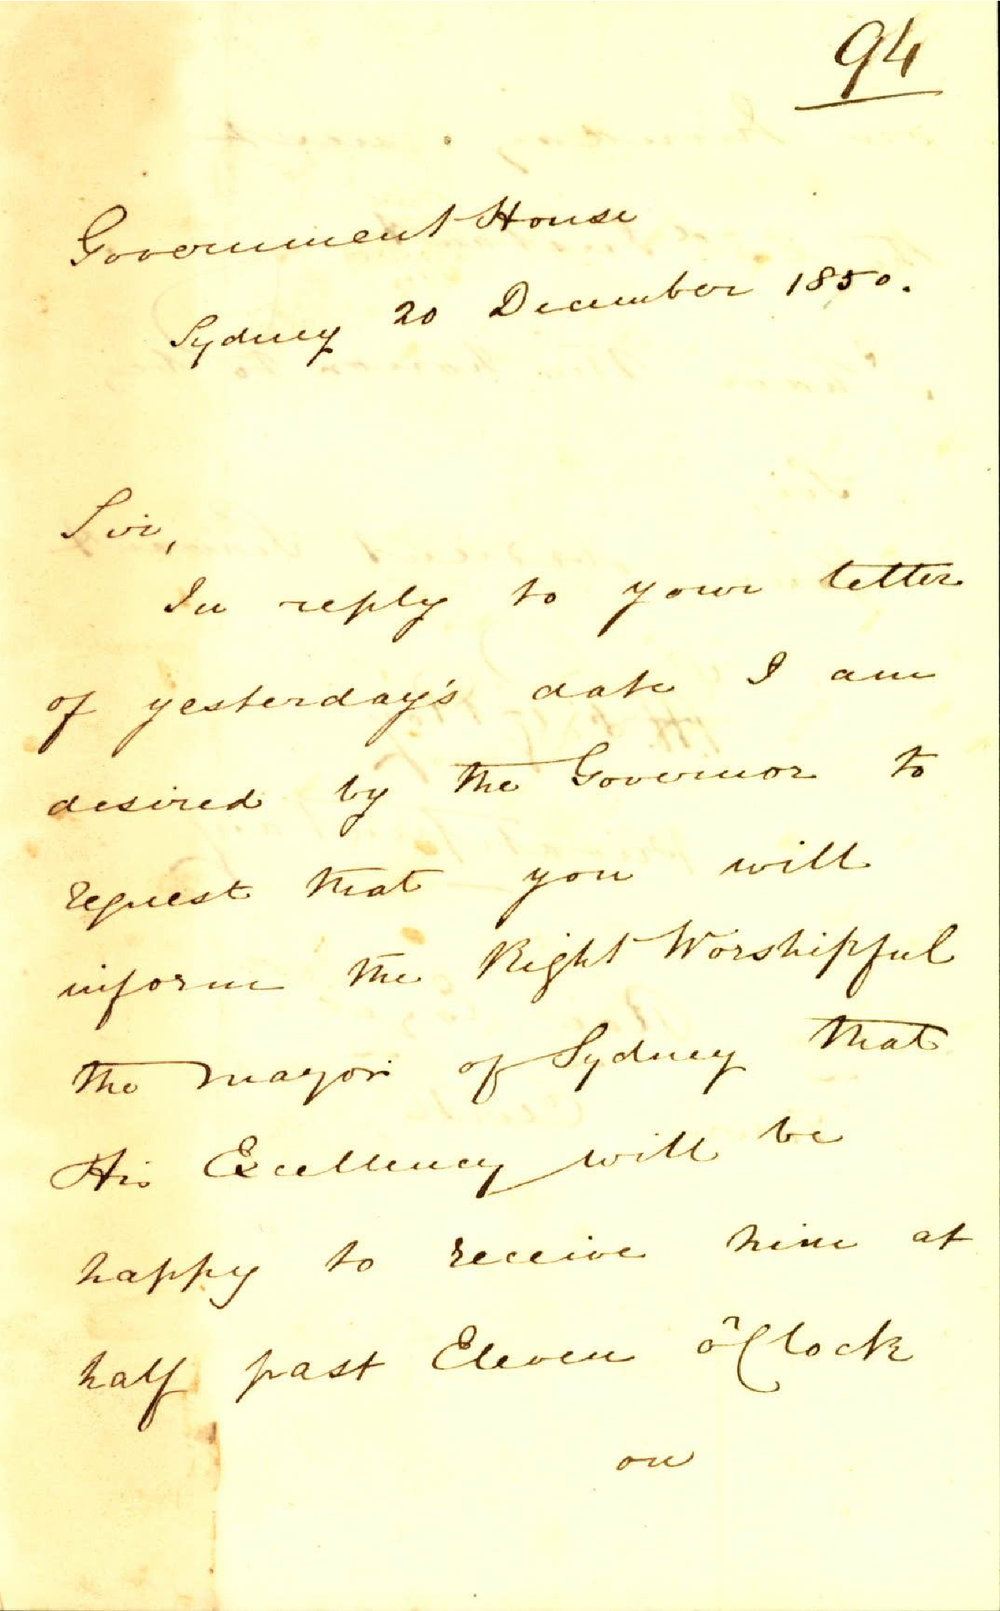 94
Government House
Sydney 20 December 1850.
Sir,
In reply to your letter
of yesterday's date I am
desired by the Governor to
request that you will
inform the Right Worshipful
the Mayor of Sydney that
His Excellency will be
happy to receive him at
half past Eleven o'Clock
on